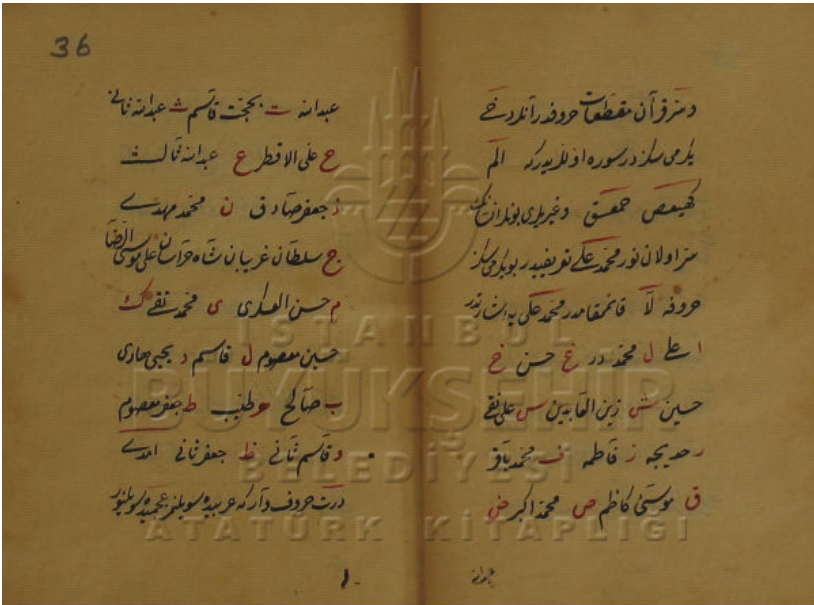 سر قرآن مقطعات حروفدر آنلردخى
يكرمى سكز در سوره اوللريدركه الم
كهيعص حمعسق وغيريلرى بونلرانك
سر اولان نور محمد على تعريفيدر بو يكرمى سكز
حروفه لا قائمقامدر محمد على يه اشارتدر
ا على ل محمد در غ حسن خ
حسين ش زين العابدين س على نقى
ر خديجه ز فاطمه ف محمد باقر
ق موسى كاظم ص محمد اكبر ض
عبدالله ت بحجت قاسم ث عبدالله ثانى
ح على الاقطر ع عبدالله ثالث
ذ جعفر صادق ن محمد مهدى
ج سلطان غريبان شاه خراسان على موسى الرضا
م حسن العسكرى ى محمد تقى ك
حسين معصوم ل قاسم د يحيى هادى
ب صالح و طيب ط جعفر معصوم
د قاسم ثانى ظ جعفر ثانى امدى
درت حروف واركه عربيده سويلنمز عجميده سويلنور
36
ISTANBUL
BÜYÜKŞEHİR
BELEDİYESİ
ATATÜRK KİTAPLIĞI